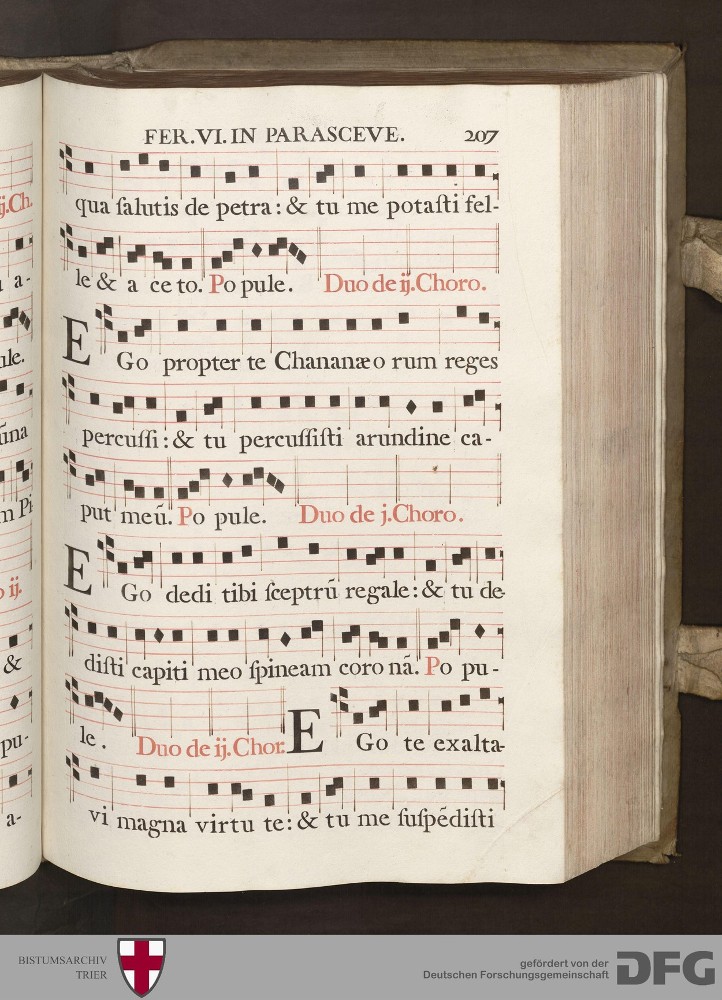 FER.VI.IN PARASCEVE. 207
qua ſalutis de petra: & tu me potaſti fel-
le & a ce to. Po pule. Duo de ij. Choro.
EGo propter te Chananæo rum reges
percuſſi: & tu percuſſiſti arundine ca-
put meũ. Po pule. Duo de j. Choro.
EGo dedi tibi ſceptrũ regale: & tu de-
diſti capiti meo ſpineam coro nã. Po pu-
le. Duo de ij. Chor. EGo te exalta-
vi magna virtu te: & tu me ſuſpẽdiſti
ij.Ch.
a-
ule.
ũna
m Pi
ij.
&
pu-
a-
BISTUMSARCHIV
TRIER
gefördert von der
Deutschen Forschungsgemeinschaft
DFG